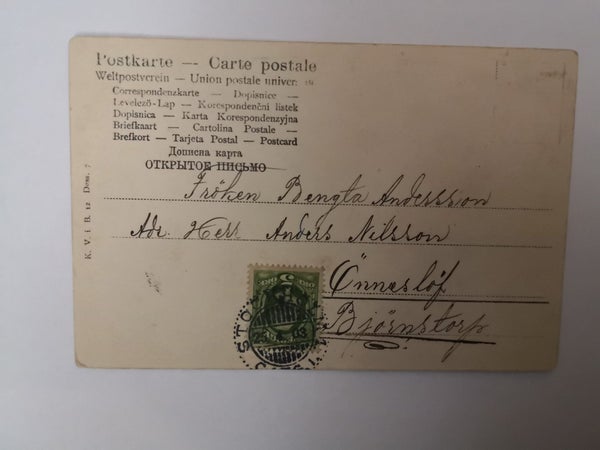 Postkarte — Carte postale
Weltpostverein — Union postale univer:
Correspondenzkarte — Dopisnice —
Levelező-Lap — Korespondenční lístek
Dopisnica — Karta Korespondenzyjna
Briefkaart — Cartolina Postale —
Brefkort — Tarjeta Postal — Postcard
Дописна карта
ОТКРЫТОЕ ПИСЬМО
Fröken Bengta Andersson
Adr. Herr Anders Nilsson
Önneslöf
Björnstorp
K. V. i B. 12 Dess. 7